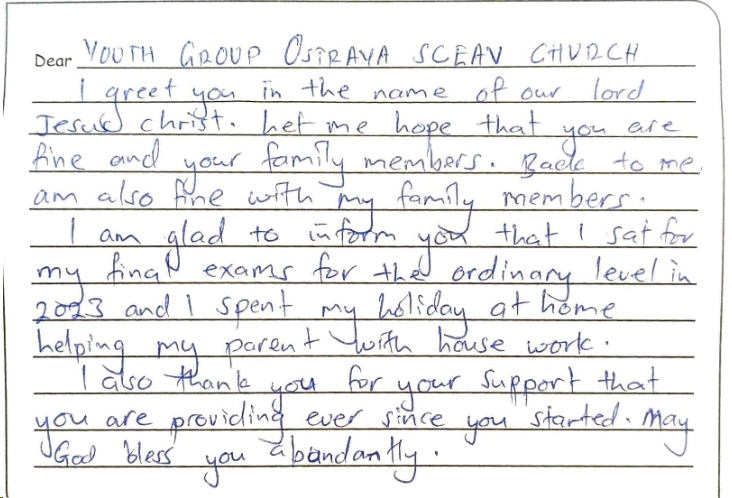 Dear YOUTH GROUP OSTRAVA SCEAV CHURCH
I greet you in the name of our lord
Jesus christ. Let me hope that you are
fine and your family members. Back to me,
am also fine with my family members.
I am glad to inform you that I sat for
my final exams for the ordinary level in
2023 and I spent my holiday at home
helping my parent with house work.
I also thank you for your support that
you are providing ever since you started. May
God bless you abandantly.